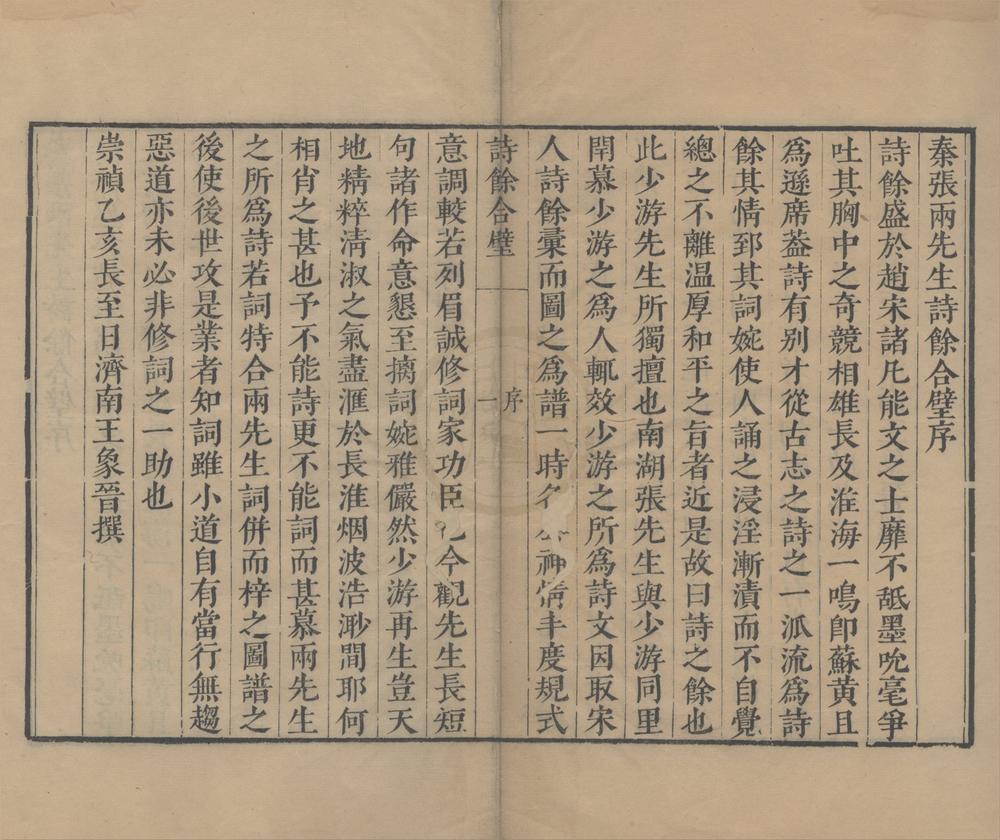 秦張兩先生詩餘合璧序
詩餘盛於趙宋諸凡能文之士靡不䑛墨吮毫爭
吐其胸中之奇競相雄長及淮海一鳴卽蘇黃且
爲遜席葢詩有别才從古志之詩之一泒流爲詩
餘其情郅其詞婉使人誦之浸淫漸漬而不自覺
總之不離温厚和平之旨者近是故曰詩之餘也
此少游先生所獨擅也南湖張先生與少游同里
閈慕少游之爲人輒效少游之所爲詩文因取宋
人詩餘彙而圖之爲譜一時神情丰度規式
詩餘合璧
序
一
意調較若列眉誠修詞家功臣今觀先生長短
句諸作命意懇至摛詞婉雅儼然少游再生豈天
地精粹淸淑之氣盡滙於長淮烟波浩渺間耶何
相肖之甚也予不能詩更不能詞而甚慕兩先生
之所爲詩若詞特合兩先生詞併而梓之圖譜之
後使後世攻是業者知詞雖小道自有當行無趨
惡道亦未必非修詞之一助也
崇禎乙亥長至日濟南王象晉撰